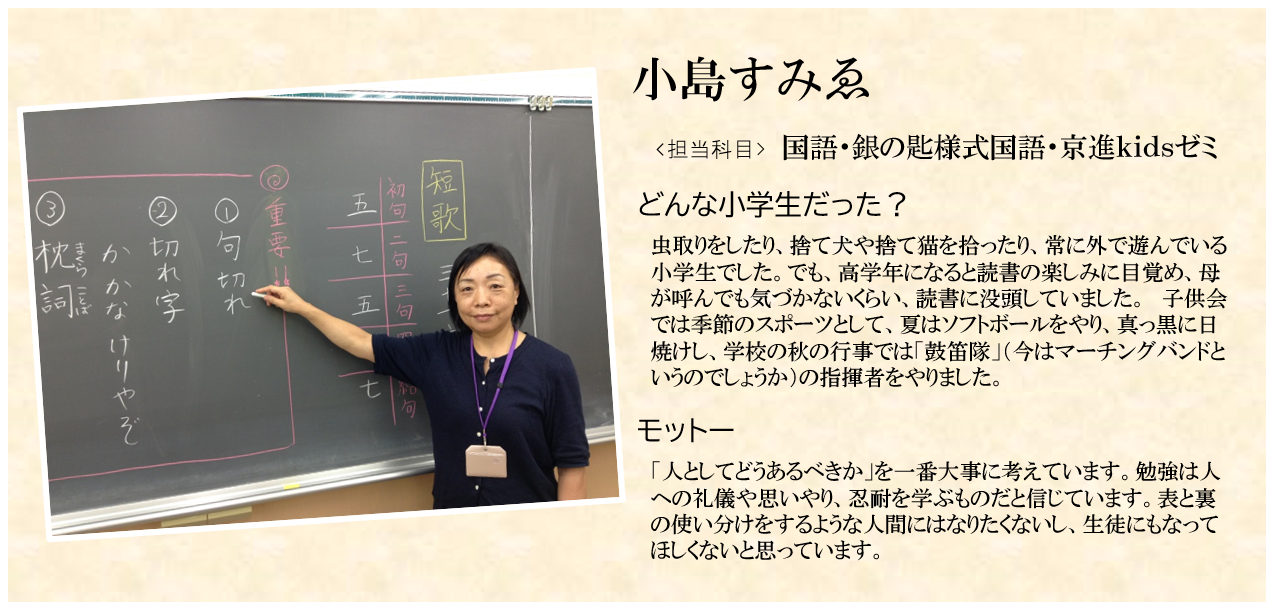 小島すみゑ
<担当科目> 国語・銀の匙様式国語・京進kidsゼミ
どんな小学生だった？
虫取りをしたり、捨て犬や捨て猫を拾ったり、常に外で遊んでいる
小学生でした。でも、高学年になると読書の楽しみに目覚め、母
が呼んでも気づかないくらい、読書に没頭していました。 子供会
では季節のスポーツとして、夏はソフトボールをやり、真っ黒に日
焼けし、学校の秋の行事では「鼓笛隊」（今はマーチングバンドと
いうのでしょうか）の指揮者をやりました。
モットー
「人としてどうあるべきか」を一番大事に考えています。勉強は人
への礼儀や思いやり、忍耐を学ぶものだと信じています。表と裏
の使い分けをするような人間にはなりたくないし、生徒にもなって
ほしくないと思っています。
短歌
初句 二句 三句
結句
五 七 五
七
重要!!
①句切れ
②切れ字
かかなけりやぞ
③枕詞
まくらことば